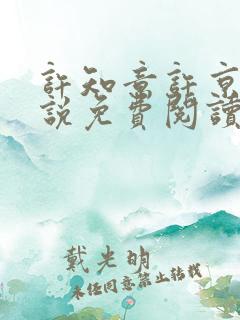 許知意許京
說免費閱讀
戴光明
未經同意禁止轉載